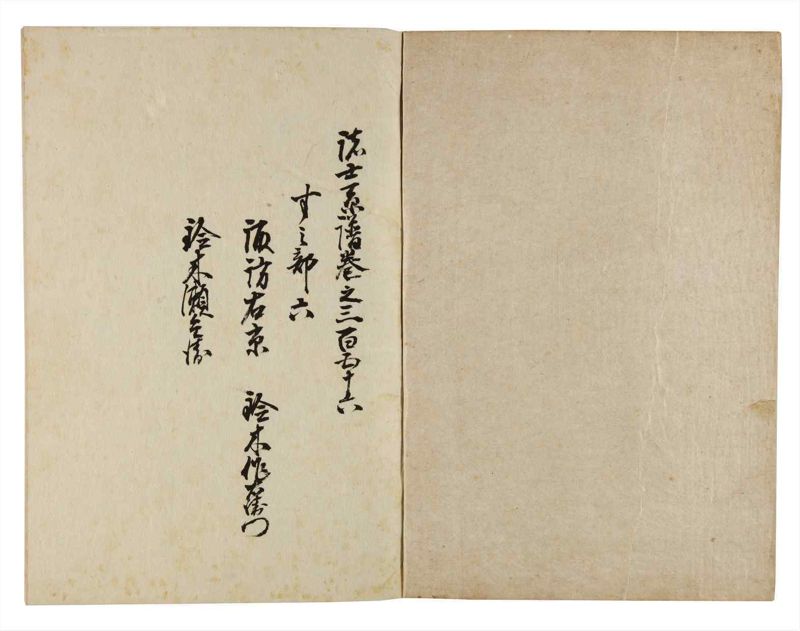 諸士系譜巻之三百五十六
す之部六
諏訪右京 鈴木作右衛門
鈴木瀬兵衛